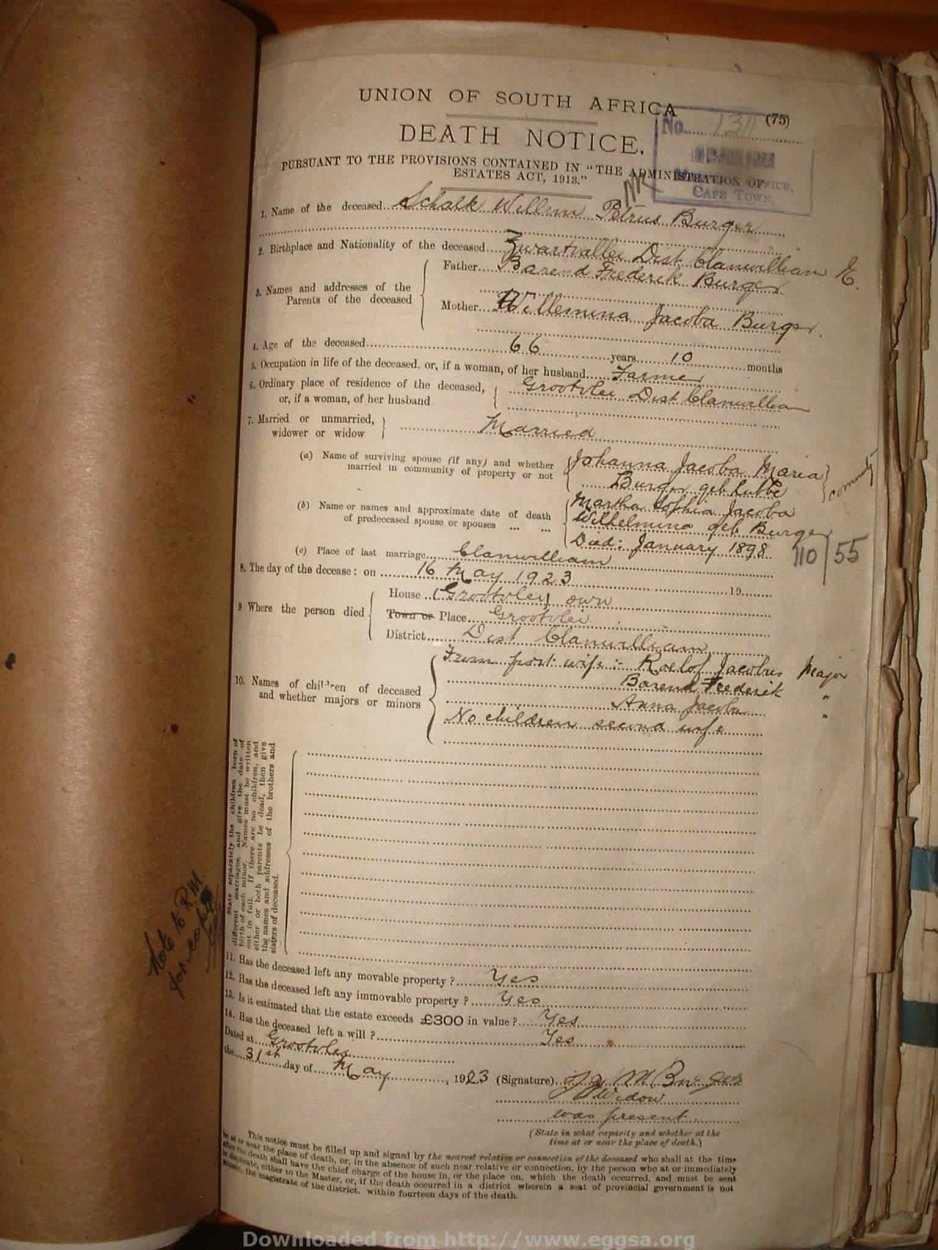 UNION OF SOUTH AFRICA
(75)
No. 1311
DEATH NOTICE.
PURSUANT TO THE PROVISIONS CONTAINED IN "THE ADMINISTRATION OF
ESTATES ACT, 1913."
OFFICE,
CAPE TOWN.
1. Name of the deceased Schalk Willem Petrus Burger
2. Birthplace and Nationality of the deceased Zwartvallei Dist Clanwilliam E.
3. Names and addresses of the Parents of the deceased
Father Barend Frederik Burger
Mother Willemina Jacoba Burger.
4. Age of the deceased 66 years 10 months
5. Occupation in life of the deceased, or, if a woman, of her husband Farmer
6. Ordinary place of residence of the deceased, or, if a woman, of her husband
Grootvlei Dist Clanwilliam
7. Married or unmarried, widower or widow
Married
(a) Name of surviving spouse (if any) and whether married in community of property or not
Johanna Jacoba Maria
Burger geb Lubbe
(b) Name or names and approximate date of death of predeceased spouse or spouses
Martha Sophia Jacoba
Wilhelmina geb Burger
Died: January 1898
110/55
(c) Place of last marriage Clanwilliam
8. The day of the decease: on 16 May 1923 19
9 Where the person died
House (Grootvley) own
Town or Place Grootvlei
District Dist Clanwilliam
10. Names of children of deceased and whether majors or minors
From first wife :- Roelof Jacobus Major
Barend Frederik "
Anna Jacoba "
No children second wife
State separately the children born of
different marriages, and give the date of
birth of each minor. Names must be written
out in full. If there are no children, and
either or both parents be dead, then give
the names and addresses of the brothers and
sisters of deceased.
Note to R.M.
for copy
11. Has the deceased left any movable property ? Yes
12. Has the deceased left any immovable property ? Yes
13. Is it estimated that the estate exceeds £300 in value ? Yes
14. Has the deceased left a will ? Yes
Dated at Grootvlei
the 31st day of May, 1923 (Signature) J J M Burger
Widow
was present
(State in what capacity and whether at the
time at or near the place of death.)
This notice must be filled up and signed by the nearest relative or connection of the deceased who shall at the time
be at or near the place of death, or, in the absence of such near relative or connection, by the person who at or immediately
after the death shall have the chief charge of the house in, or the place on, which the death occurred, and must be sent
in duplicate, either to the Master, or, if the death occurred in a district wherein a seat of provincial government is not
situate, the magistrate of the district, within fourteen days of the death.
Downloaded from http://www.eggsa.org